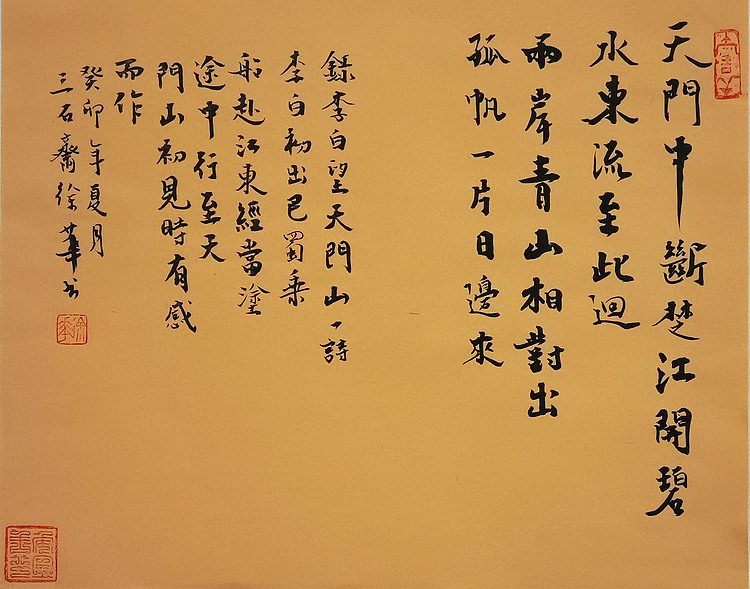 天門中斷楚江開碧
水東流至此迴
兩岸青山相對出
孤帆一片日邊來
錄李白望天門山一詩
李白初出巴蜀乘
船赴江東經當塗
途中行至天
門山初見時有感
而作
癸卯年夏月
三石齋徐華書
徐華